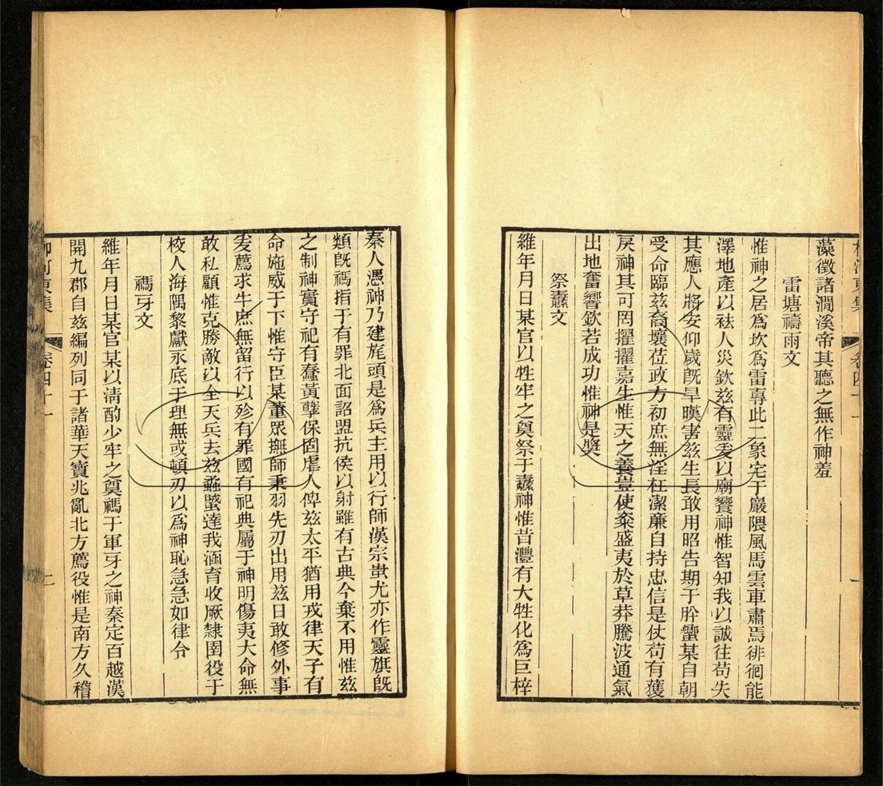 柳河東集 卷四十一
藻徵諸澗溪帝其聽之無作神羞
雷塘禱雨文
惟神之居爲坎爲雷專此二象宅于巖隈風馬雲車肅焉徘徊能
澤地產以袪人災欽茲有靈爰以廟饗神惟智知我以誠往苟失
其應人將安仰歲旣旱暵害茲生長敢用昭告期于肸蠁某自朝
受命臨茲裔壤莅政方初庶無淫枉潔廉自持忠信是仗苟有獲
戾神其可罔擢擢嘉生惟天之養豈使粢盛夷於草莽騰波通氣
出地奮響欽若成功惟神是奬
祭纛文
維年月日某官以牲牢之奠祭于纛神惟昔灃有大牲化爲巨梓
秦人憑神乃建旄頭是爲兵主用以行師漢宗蚩尤亦作靈旗旣
類旣禡指于有罪北面詔盟抗侯以射雖有古典今棄不用惟茲
之制神實守祀有蠢黃孽保固虐人俾茲太平猶用戎律天子有
命施威于下惟守臣某董衆撫師秉羽先刃出用茲日敢修外事
爰薦求牛庶無留行以殄有罪國有祀典屬于神明傷夷大命無
敢私顧惟克勝敵以全天兵去茲蟊蠈達我涵育收厥隸圉役于
校人海隅黎獻永底于理無或頓刃以爲神恥急急如律令
禡牙文
維年月日某官某以淸酌少牢之奠禡于軍牙之神秦定百越漢
開九郡自茲編列同于諸華天寶兆亂北方薦役惟是南方久稽
柳河東集 卷四十一